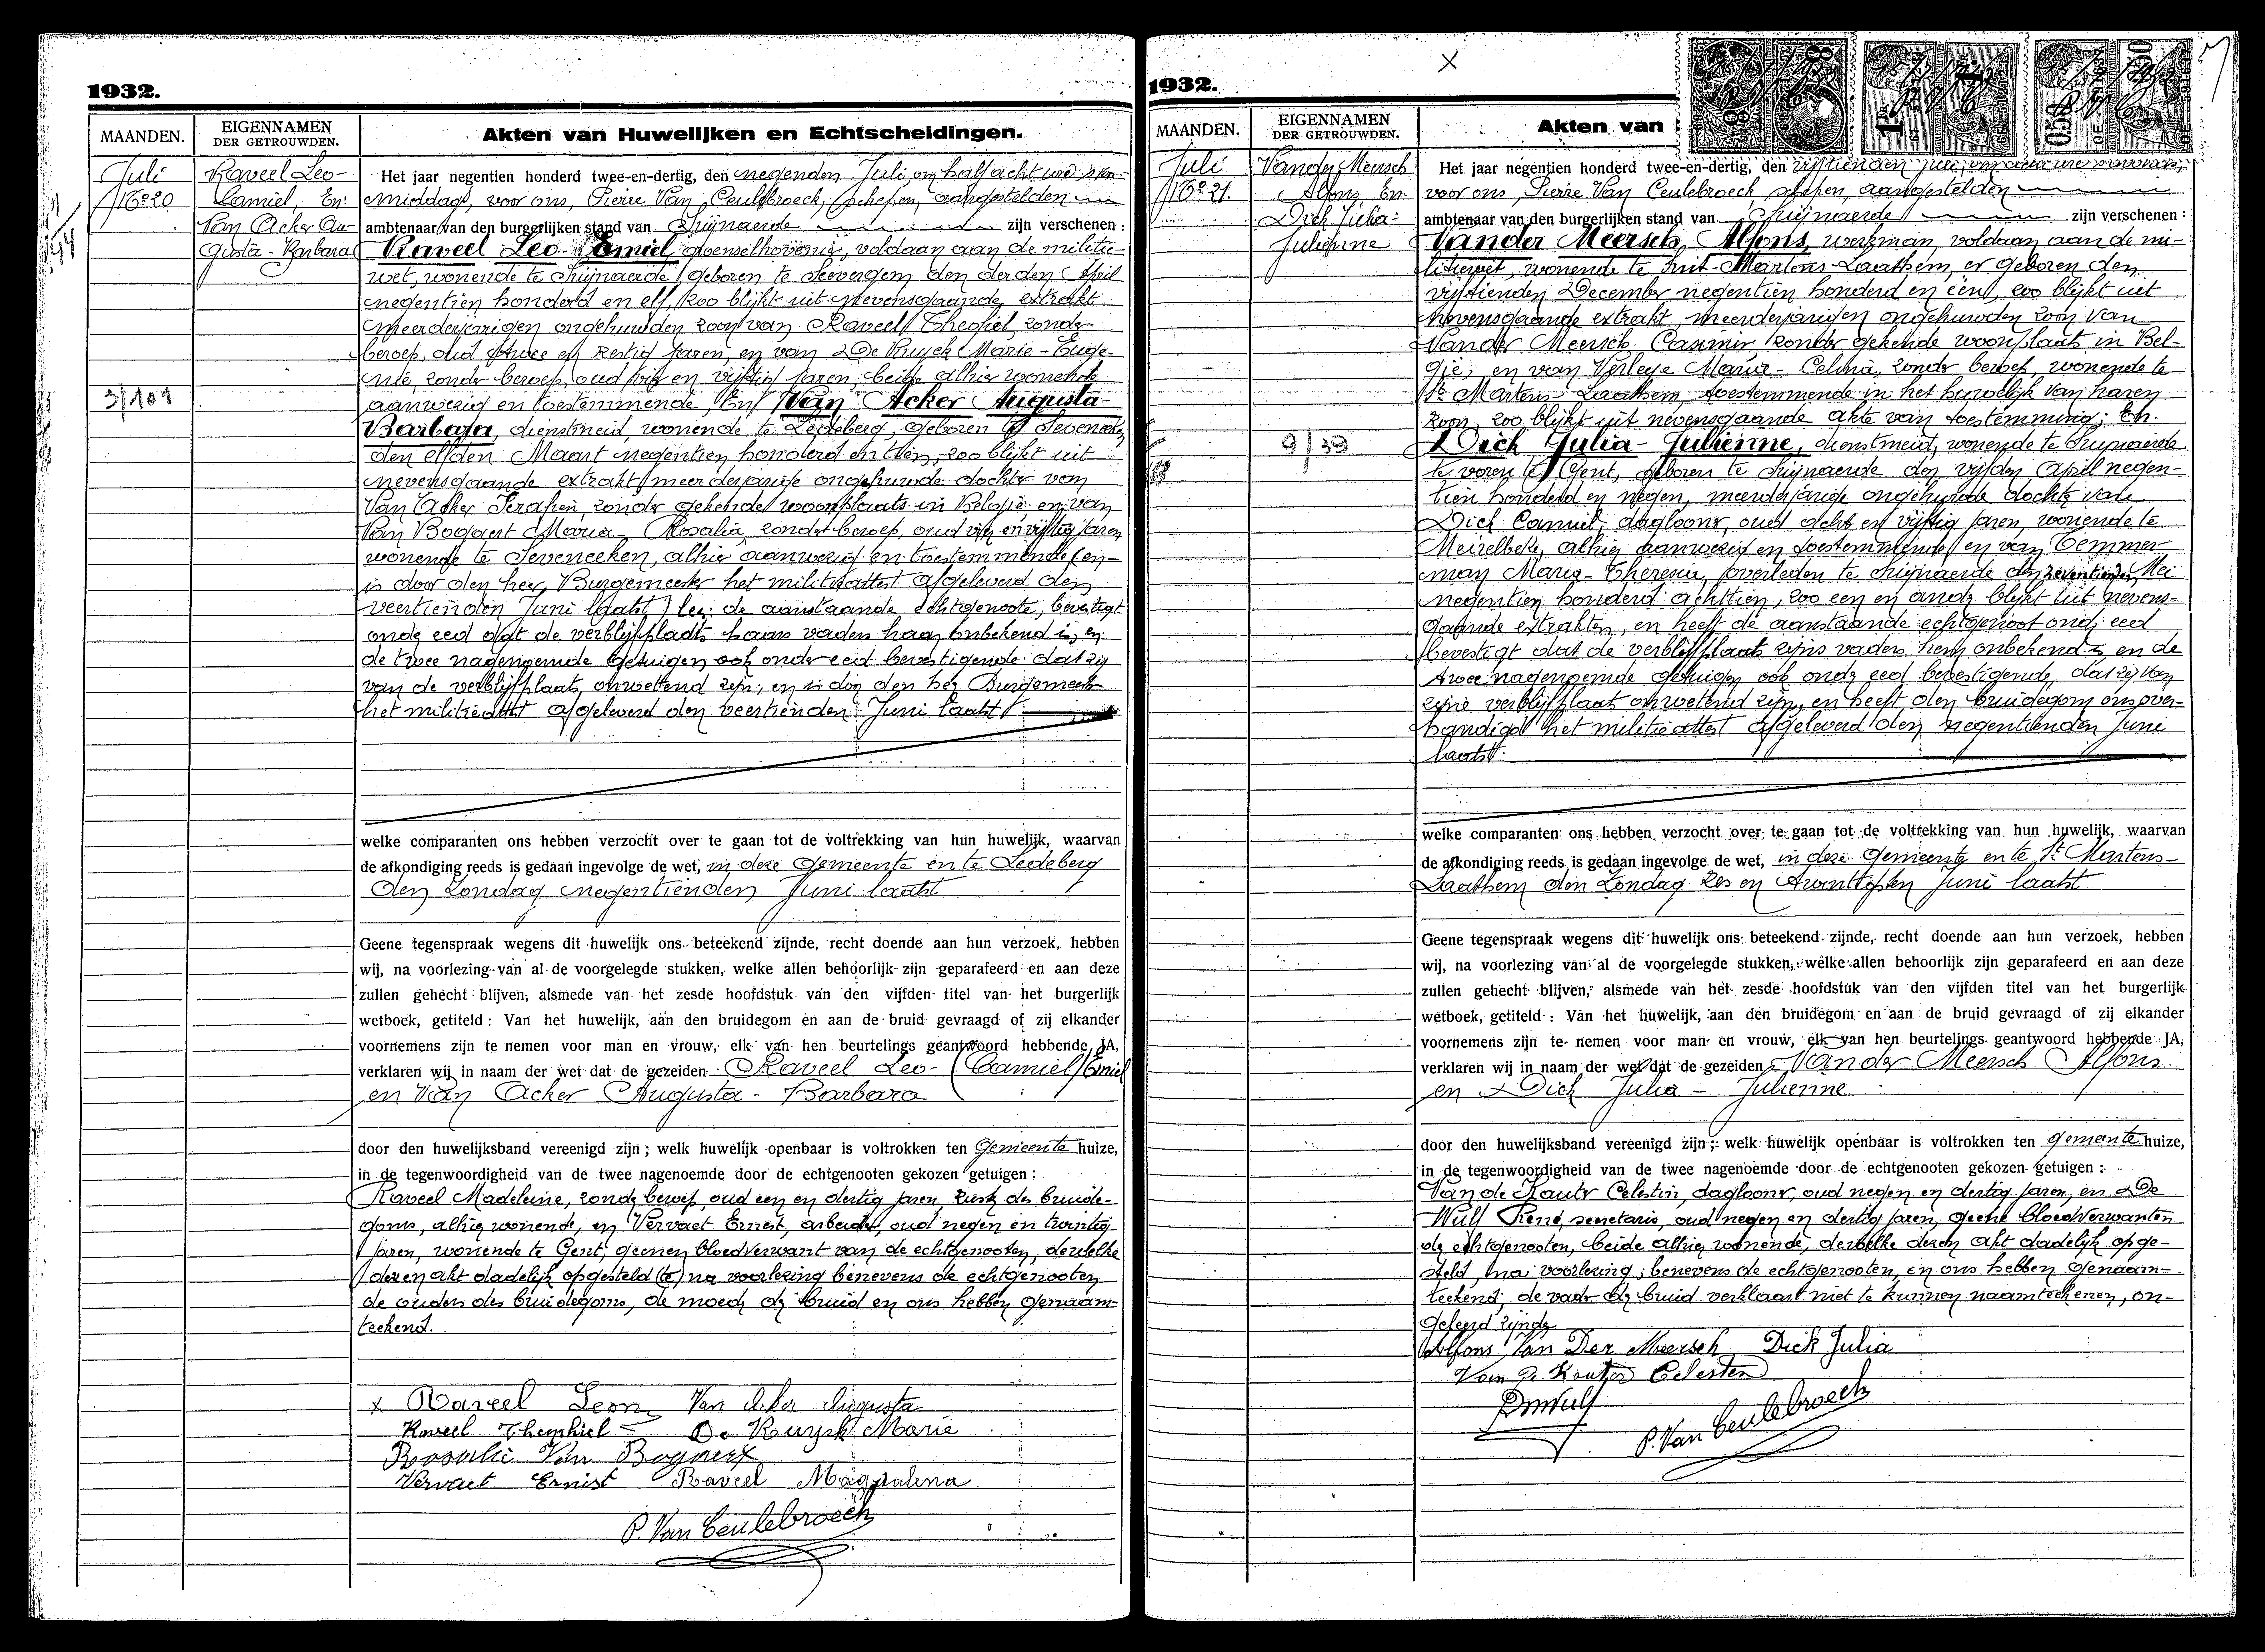 1932.
MAANDEN.
EIGENNAMEN
DER GETROUWDEN.
Akten van Huwelijken en Echtscheidingen.
Juli
No 20
Raveel Leo-
Camiel, En:
Van Acker Au-
gusta-Barbara
3/101
Het jaar negentien honderd twee-en-dertig, den negenden Juli, om half acht ure 's voor-
middags, voor ons, Pierre Van Ceulebroeck, schepen, aangestelden
ambtenaar van den burgerlijken stand van Zwijnaerde zijn verschenen :
Raveel Leo-Camiel, voldaan aan de militie-
wet, wonende te Zwijnaerde, geboren te Seevergem den derden April
negentien honderd en elf, zoo blijkt uit nevensgaande extrakt
meerderjarigen ongehuwden zoon van Raveel Theofiel, zonder
beroep, oud twee en zestig jaren, en van De Kuyck Marie-Euge-
nie, zonder beroep, oud vijf en vijftig jaren, beide alhier wonende
aanwezig en toestemmende, En Van Acker Augusta-
Barbara, dienstmeid, wonende te Ledeberg, geboren te
den elfden Maart negentien honderd en tien, zoo blijkt uit
nevensgaande extrakt, meerderjarige ongehuwde dochter van
Van Acker Serafien, zonder gekende woonplaats in België en van
Van Bogaert Maria-Rosalia, zonder beroep, oud vijf en vijftig jaren
wonende te Seveneeken, alhier aanwezig en toestemmende (en
is door den heer Burgemeester het militieattest afgeleverd den
veertienden Juni laatst) de aanstaande echtgenoote, bevestigt
onder eed dat de verblijfplaats haars vaders haar onbekend is, en
de twee nagenoemde getuigen ook onder eed bevestigende dat zij
van de verblijfplaats onwetend zijn, en is door den heer Burgemeester
het militieattest afgeleverd den veertienden Juni laatst.
welke comparanten ons hebben verzocht over te gaan tot de voltrekking van hun huwelijk, waarvan
de afkondiging reeds is gedaan ingevolge de wet, in deze Gemeente en te Ledeberg
den Zondag negentienden Juni laatst
Geene tegenspraak wegens dit huwelijk ons beteekend zijnde, recht doende aan hun verzoek, hebben
wij, na voorlezing van al de voorgelegde stukken, welke allen behoorlijk zijn geparafeerd en aan deze
zullen gehecht blijven, alsmede van het zesde hoofdstuk van den vijfden titel van het burgerlijk
wetboek, getiteld : Van het huwelijk, aan den bruidegom en aan de bruid gevraagd of zij elkander
voornemens zijn te nemen voor man en vrouw, elk van hen beurtelings geantwoord hebbende JA,
verklaren wij in naam der wet dat de gezeiden Raveel Leo-(Camiel) Emiel
en Van Acker Augusta-Barbara
door den huwelijksband vereenigd zijn ; welk huwelijk openbaar is voltrokken ten Gemeente huize,
in de tegenwoordigheid van de twee nagenoemde door de echtgenooten gekozen getuigen :
Raveel Madeleine, zonder beroep, oud een en dertig jaren, zuster des bruide-
goms, alhier wonende, en Vervaet Ernest, arbeider, oud negen en twintig
jaren, wonende te Gent, geenen bloedverwant van de echtgenooten, dewelke
dezen akt dadelijk opgesteld (te) na voorlezing benevens de echtgenooten
de ouders des bruidegoms, de moeder der bruid en ons hebben genaam-
teekend.
x Raveel Leon Van Acker Augusta
Raveel Theophiel De Kuysk Marie
Rosalie Van Bogaert
Vervaet Ernest Raveel Magdalena
P. Van Ceulebroeck
X
1932.
MAANDEN.
EIGENNAMEN
DER GETROUWDEN.
Akten van
Juli
No 21.
Vander Meersch
Alfons En
Dick Julia-
Julienne
9/39
Het jaar negentien honderd twee-en-dertig, den vijftienden Juli,
voor ons, Pierre Van Ceulebroeck, schepen, aangestelden
ambtenaar van den burgerlijken stand van Zwijnaerde zijn verschenen :
Vander Meersch, Alfons, werkman, voldaan aan de mi-
litiewet, wonende te Sint-Martens-Laathem, er geboren den
vijftienden December negentien honderd en een, zoo blijkt uit
nevensgaande extrakt, meerderjarigen ongehuwden zoon van
Vander Meersch Casimir zonder gekende woonplaats in Bel-
gie, en van Verleye Maria-Celina, zonder beroep, wonende te
St Martens-Laathem, toestemmende in het huwelijk van haren
zoon, zoo blijkt uit nevensgaande akte van toestemming; En
Dick Julia-Julienne, dienstmeid, wonende te Zwijnaerde
te voren te Gent, geboren te Zwijnaerde den vijfden April negen-
tien honderd en negen, meerderjarige ongehuwde dochter van
Dick Camiel, daglooner, oud acht en vijftig jaren, wonende te
Meirelbeke, alhier aanwezig en toestemmende, en van Temmer-
man Maria-Theresia, overleden te Zwijnaerde den zeventienden Mei
negentien honderd achttien, zoo een en ander blijkt uit nevens-
gaande extrakten, en heeft de aanstaande echtgenoot onder eed
bevestigt dat de verblijfplaats zijns vaders hem onbekend is en de
twee nagenoemde getuigen ook onder eed bevestigende, dat zij van
zijne verblijfplaats onwetend zijn, en heeft den bruidegom ons over-
handigd het militieattest afgeleverd den negentienden Juni
laatst.
welke comparanten ons hebben verzocht over te gaan tot de voltrekking van hun huwelijk, waarvan
de afkondiging reeds is gedaan ingevolge de wet, in deze Gemeente en te St Martens-
Laathem den Zondag zes en twintigsten Juni laatst
Geene tegenspraak wegens dit huwelijk ons beteekend zijnde, recht doende aan hun verzoek, hebben
wij, na voorlezing van al de voorgelegde stukken, welke allen behoorlijk zijn geparafeerd en aan deze
zullen gehecht blijven, alsmede van het zesde hoofdstuk van den vijfden titel van het burgerlijk
wetboek, getiteld : Van het huwelijk, aan den bruidegom en aan de bruid gevraagd of zij elkander
voornemens zijn te nemen voor man en vrouw, elk van hen beurtelings geantwoord hebbende JA,
verklaren wij in naam der wet dat de gezeiden Vander Meersch Alfons
en Dick Julia-Julienne
door den huwelijksband vereenigd zijn ; welk huwelijk openbaar is voltrokken ten gemeente huize,
in de tegenwoordigheid van de twee nagenoemde door de echtgenooten gekozen getuigen :
Van de Kauter Celestin, daglooner, oud negen en dertig jaren, en De
Wulf René, secretaris, oud negen en dertig jaren, geene bloedverwanten
der echtgenooten, beide alhier wonende, dewelke dezen akt dadelijk opge-
steld, na voorlezing, benevens de echtgenooten, en ons hebben genaam-
teekend; de vader der bruid verklaart niet te kunnen naamteekenen, on-
geleerd zijnde
Alfons Van Der Meersch Dick Julia
Van De Kauter Celesten
DeWulf
P. Van Ceulebroeck